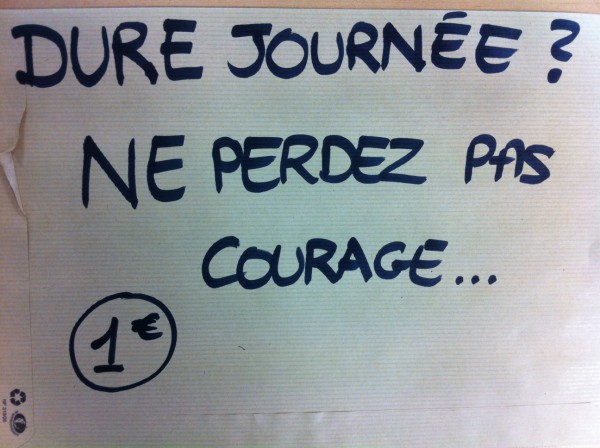 DURE JOURNÉE ?
NE PERDEZ PAS
COURAGE...
1€